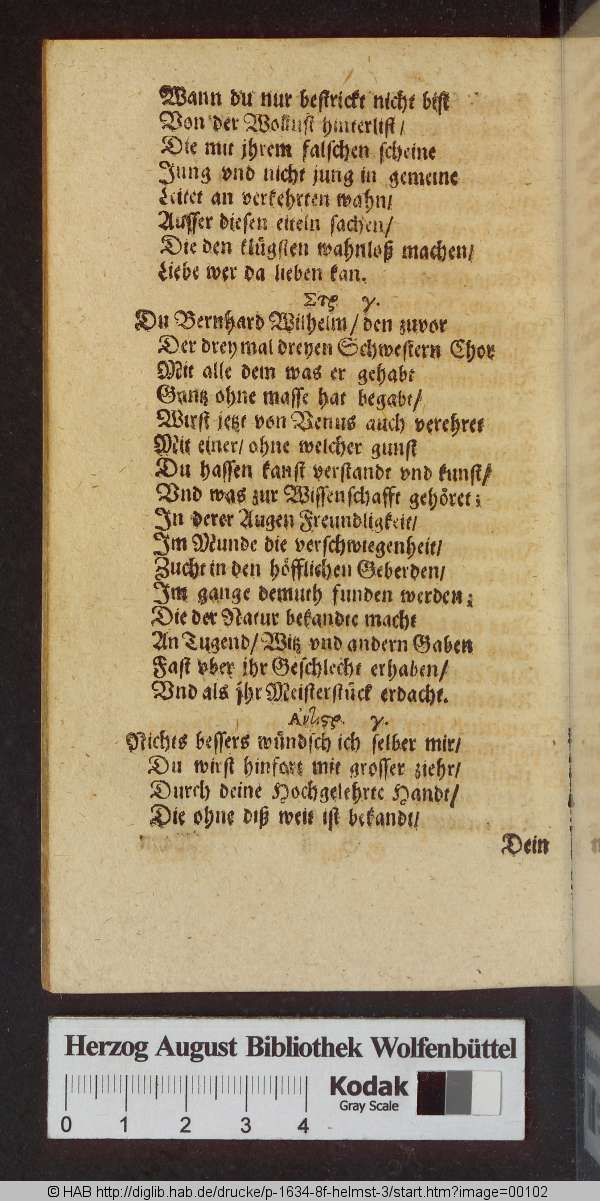 Wann du nur bestrickt nicht bist
Von der Wollust hinterlist /
Die mit jhrem falschen scheine
Jung vnd nicht jung in gemeine
Leitet an verkehrten wahn /
Ausser diesen eiteln sachen /
Die den klügsten wahnloß machen /
Liebe wer da lieben kan.
Στρ γ.
Du Bernhard Wilhelm / den zuvor
Der dreymal dreyen Schwestern Chor
Mit alle dem was er gehabt
Gantz ohne masse hat begabt /
Wirst jetzt von Venus auch verehret
Mit einer / ohne welcher gunst
Du hassen kanst verstandt vnd kunst /
Vnd was zur Wissenschafft gehöret ;
In derer Augen Freundligkeit /
Im Munde die verschwiegenheit /
Zucht in den höfflichen Geberden /
Im gange demuth funden werden ;
Die der Natur bekandte macht
An Tugend / Witz vnd andern Gaben
Fast vber jhr Geschlecht erhaben /
Vnd als jhr Meisterstück erdacht.
Αντιστρ. γ.
Nichts bessers wündsch ich selber mir /
Du wirst hinfort mit grosser ziehr /
Durch deine Hochgelehrte Handt /
Die ohne diß weit ist bekandt /
Dein
Herzog August Bibliothek Wolfenbüttel
Kodak
Gray Scale
0 1 2 3 4
© HAB http://diglib.hab.de/drucke/p-1634-8f-helmst-3/start.htm?image=00102